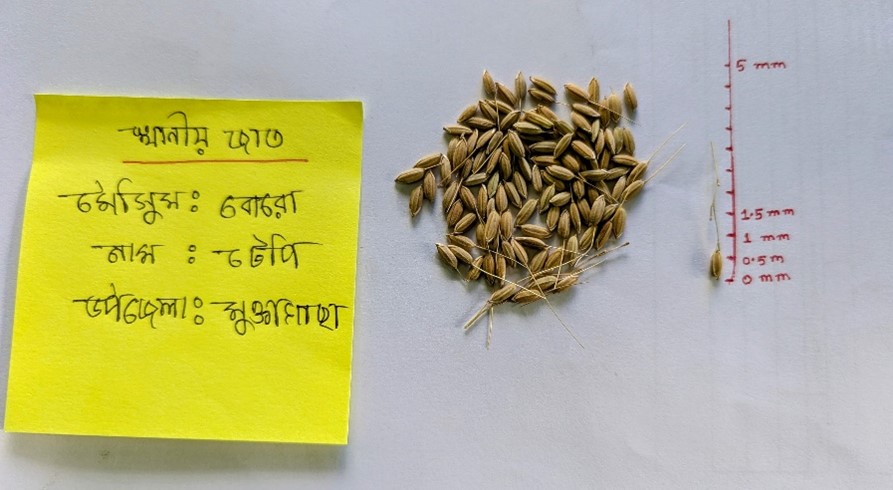 স্থানীয় জাত
মৌসুম : বোরো
নাম : টেপি
উপজেলা : মুক্তাগাছা
5 mm
1.5 mm
1 mm
0.5 m
0 mm